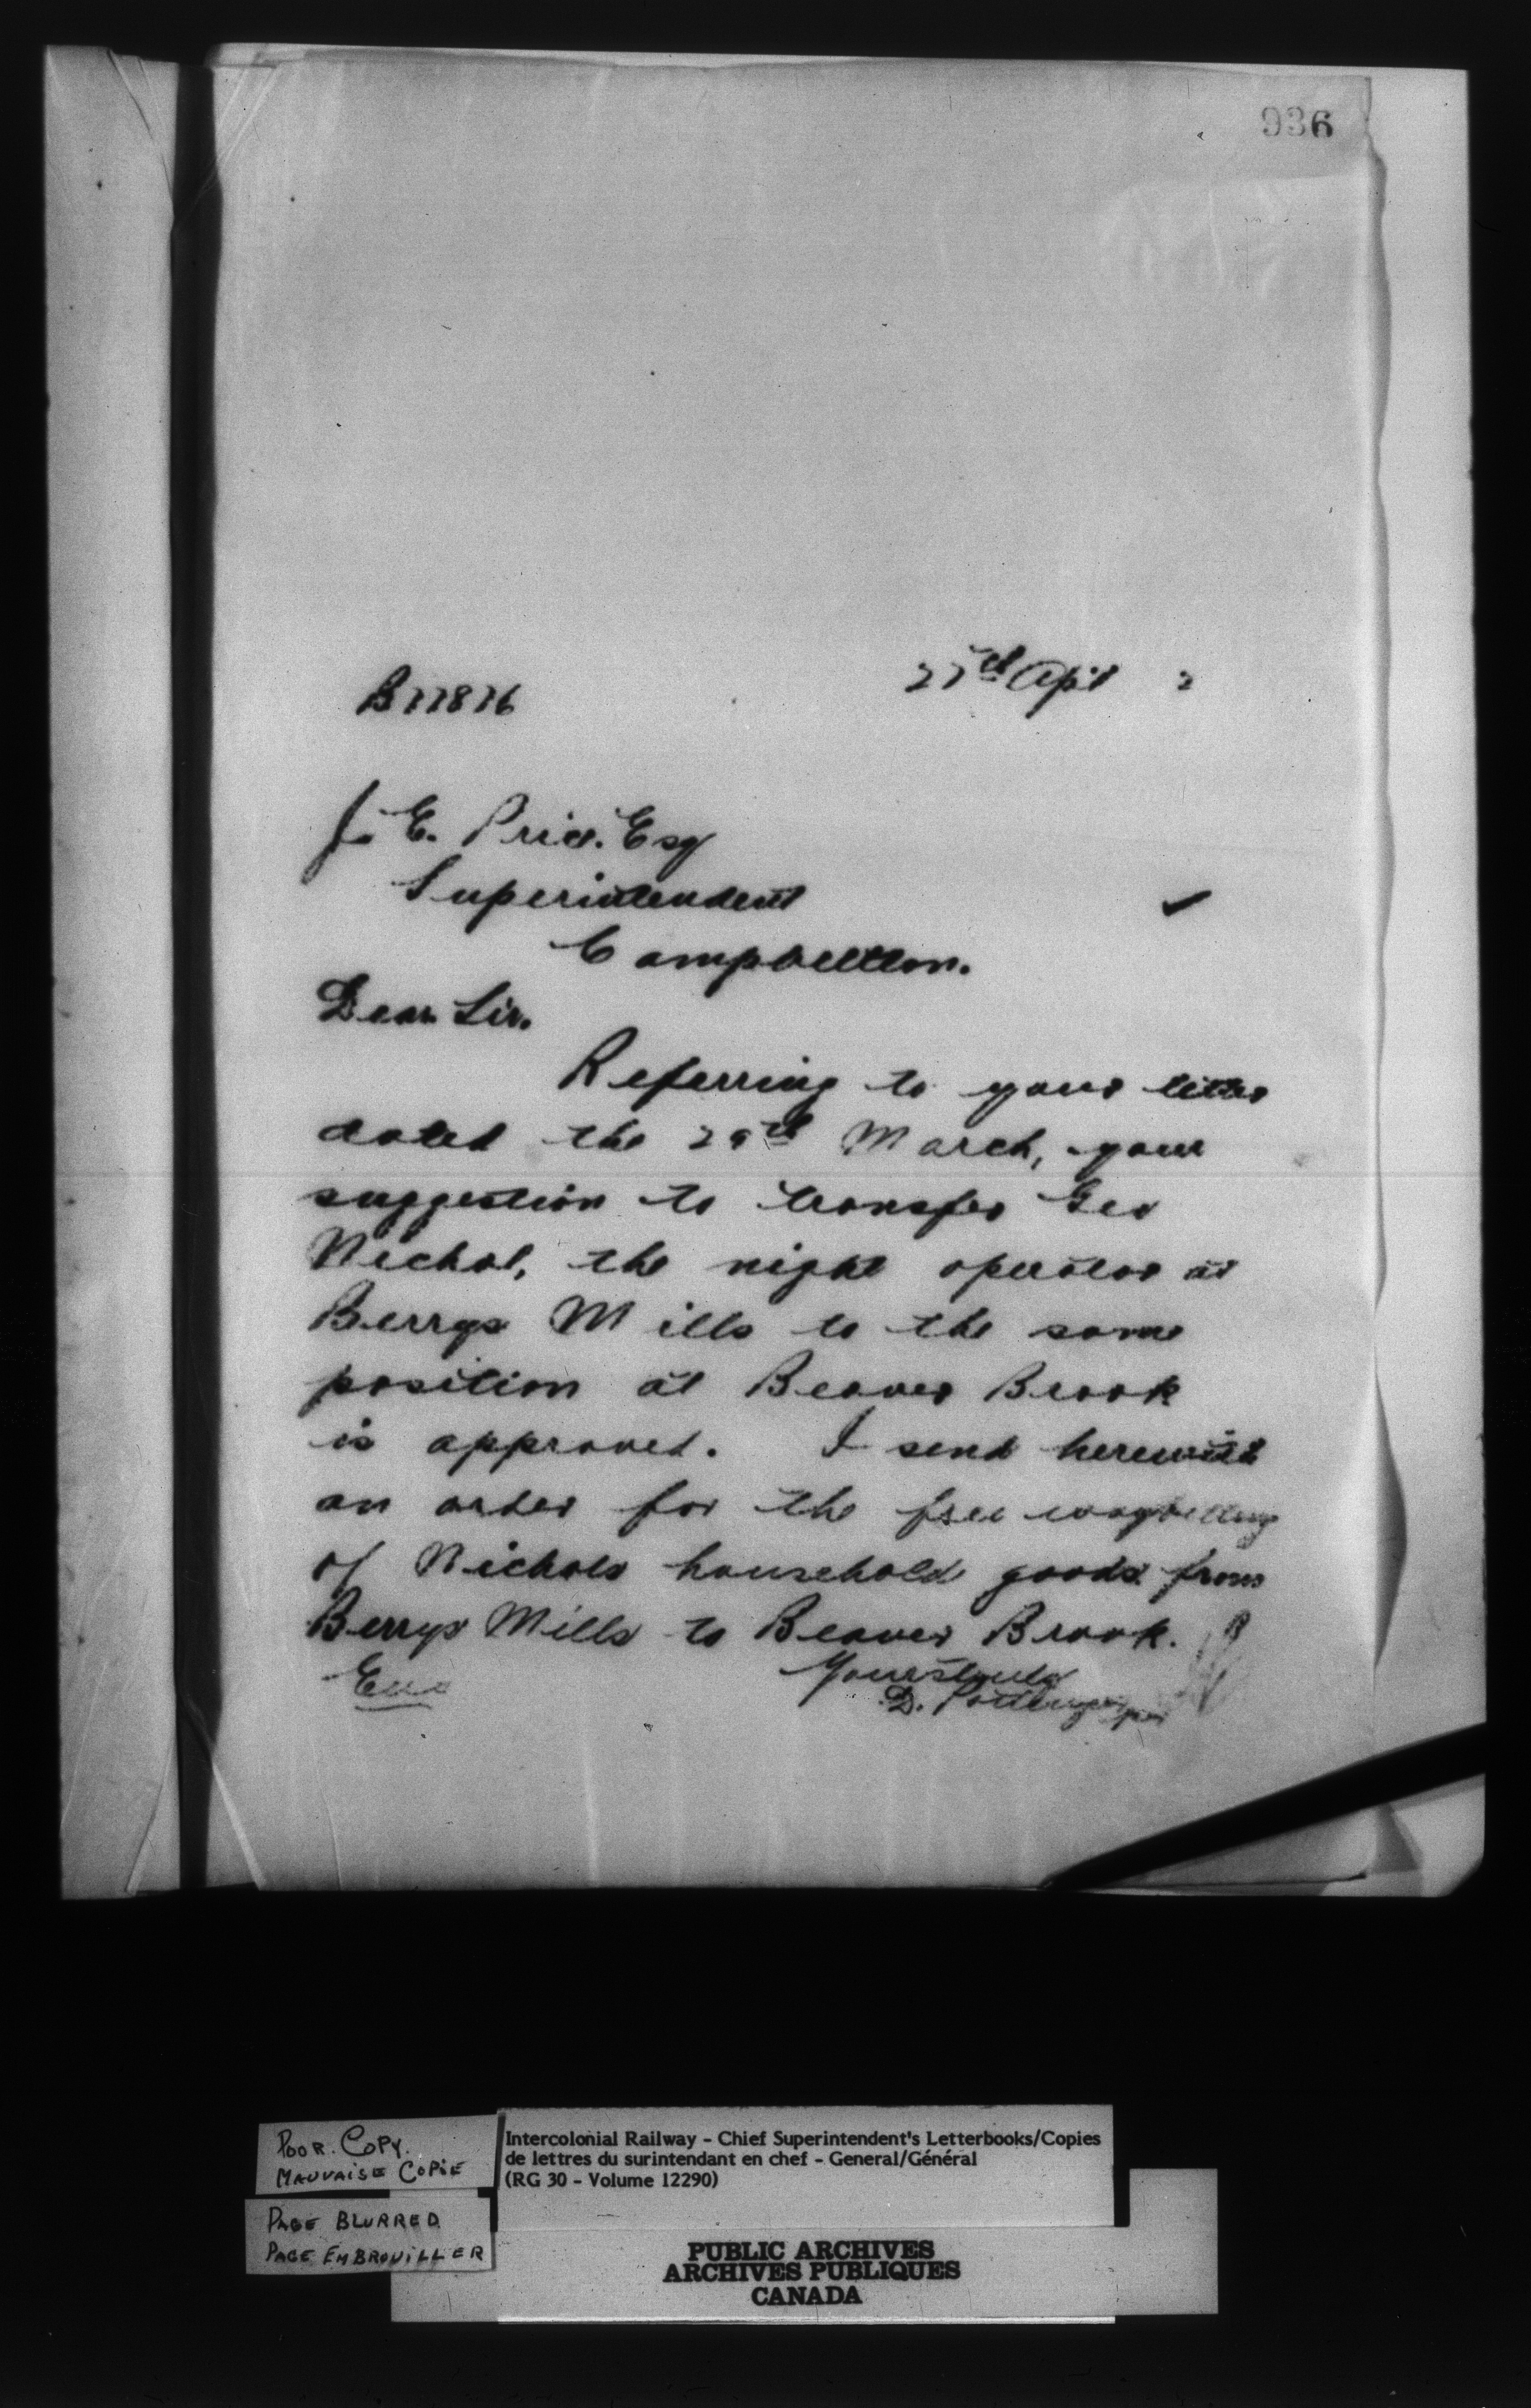 936
B77876
April 2
J. E. Price. Esq
Superintendent
Campbellton.
Dear Sir.
Referring to your letter
dated the 29th March, your
suggestion to transfer Geo
Nichol, the night operator at
Berrys Mills to the same
position at Beaver Brook
is approved. I send herewith
an order for the free waybilling
of Nichols household goods from
Berrys Mills to Beaver Brook.
Enc
Yours truly
D. Pottinger
POOR. COPY.
MAUVAISE COPIE
PAGE BLURRED
PAGE EMBROUILLER
Intercolonial Railway - Chief Superintendent's Letterbooks/Copies
de lettres du surintendant en chef - General/Général
(RG 30 - Volume 12290)
PUBLIC ARCHIVES
ARCHIVES PUBLIQUES
CANADA